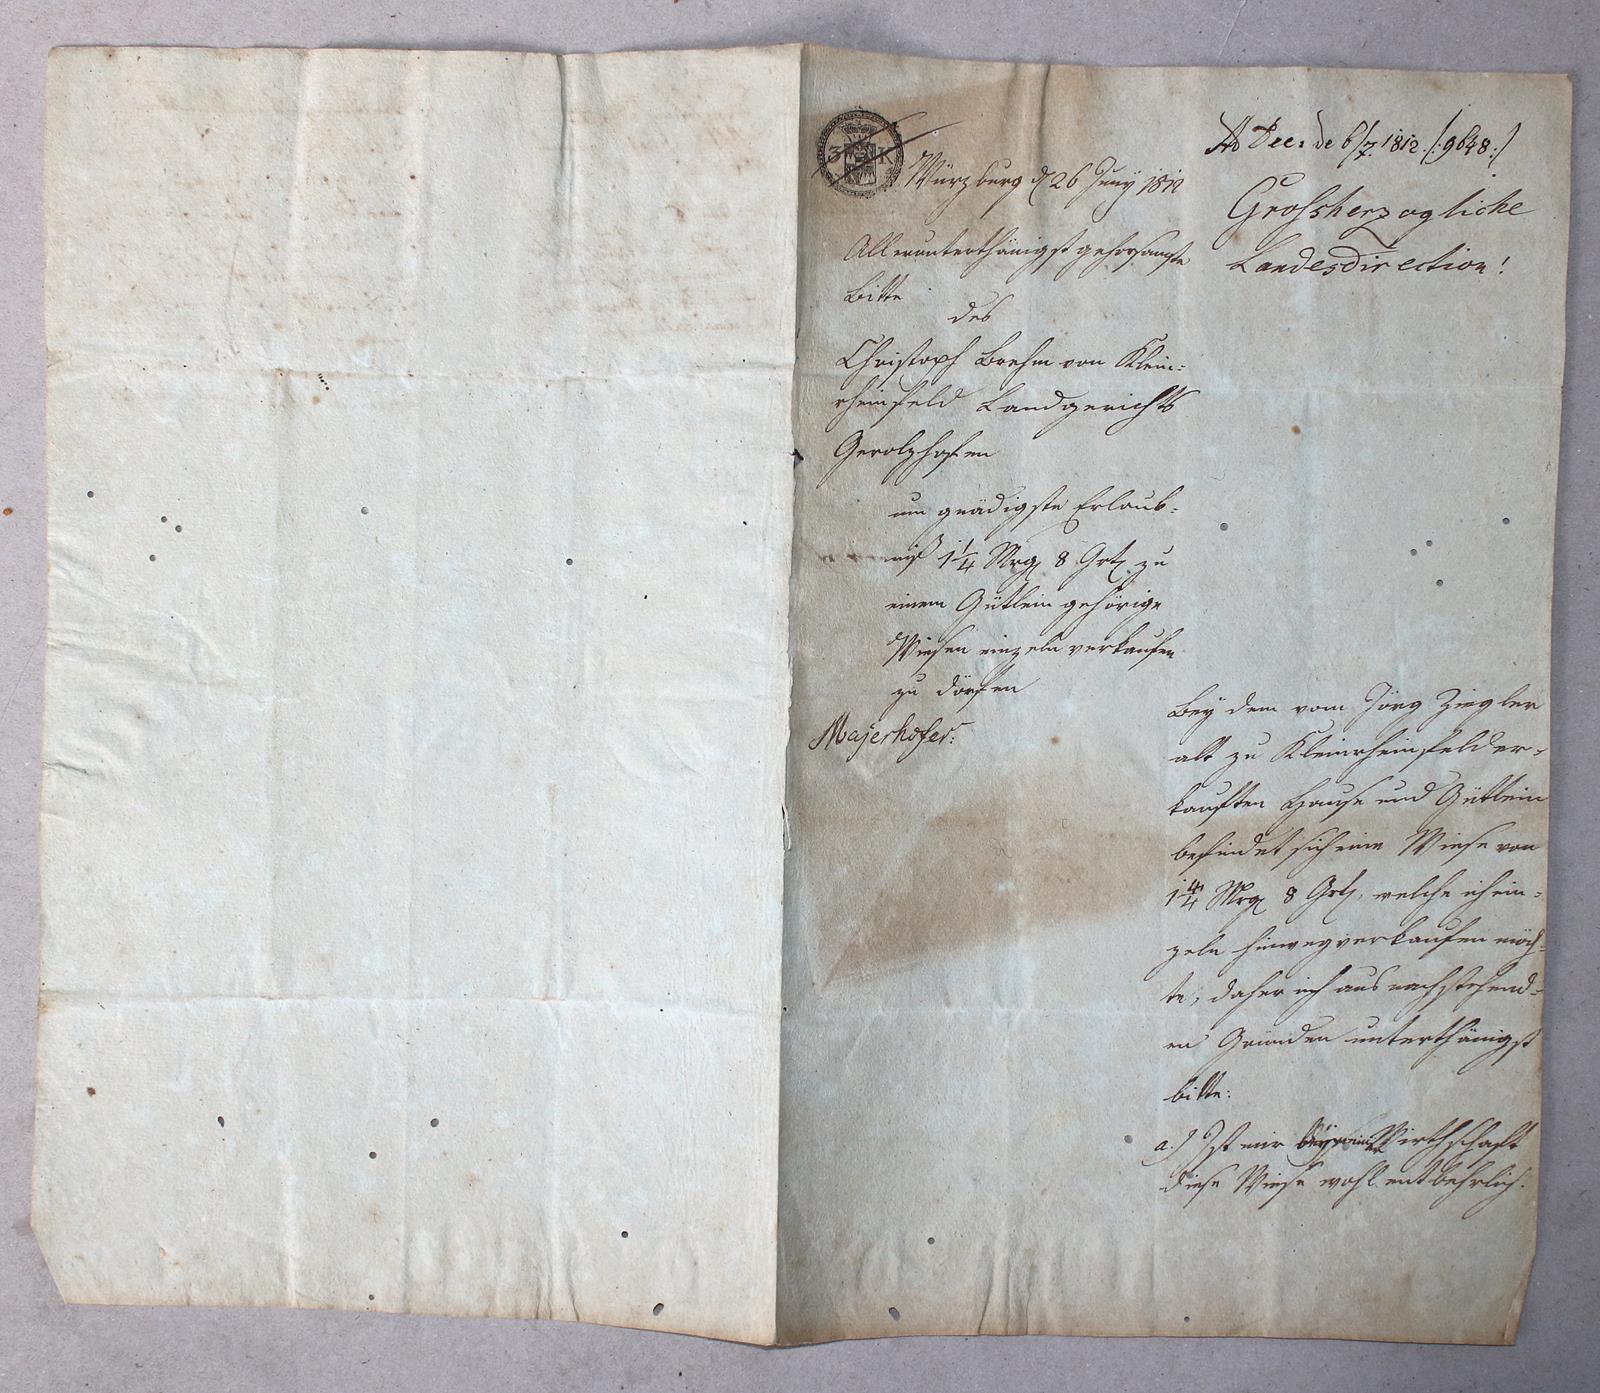 3 K
Würzburg d 26 Juny 1812
Allerunterthänigst gehorsamste
Bitte
des
Christoph Brehm von Klein-
rheinfeld Landgerichts
Gerolzhofen
um gnädigste Erlaub-
niß 1 1/4 Mrg 8 Grt zu
einem Gütlein gehörige
Wiesen einzeln verkaufen
zu dörfen
Majerhofer.
Ad Dec: de 6/7. 1812 /:9648:/
Grossherzogliche
Landesdirection!
Bey dem vom Jörg Ziegler
alt zu Kleinrheinfeld er-
kauften Hause und Gütlein
befindet sich eine Wiese von
1 1/4 Mrg 8 Grt, welche ich ein-
zeln hinwegverkaufen möch-
te, daher ich aus nachstehend-
en Gründen unterthänigst
bitte:
a.) Ist mir Wirthschaft
diese Wiese wohl entbehrlich.